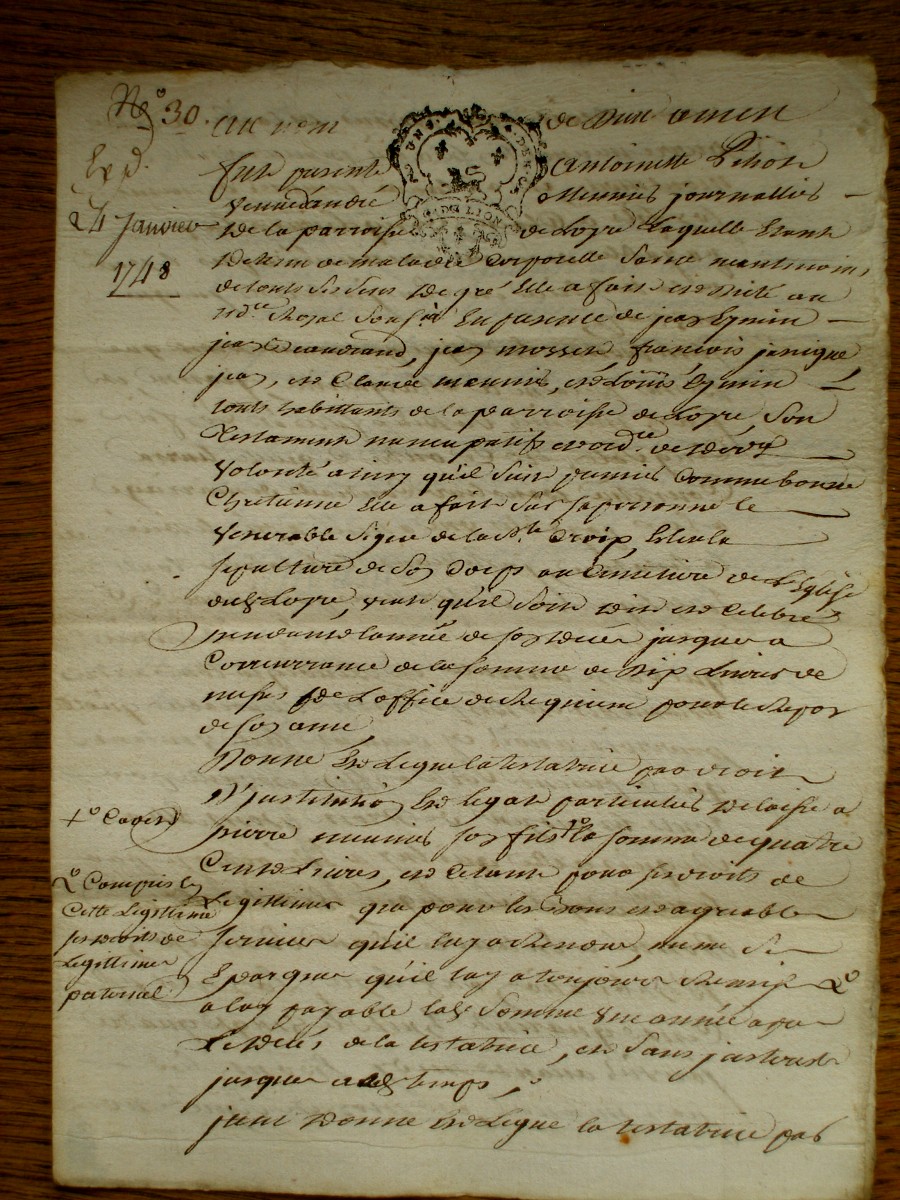 N° 30.
Exp.
24 Janvier
1748
au nom de Dieu amen
fut presente Antoinette
veuve d'andré Meunier journallier
De la parroisse de Loyre Laquelle Etant
Detenu de maladie Corporelle Saine neantmoins
de touts ses sens De gré Elle a fait et dicté au
n.re Royal Sousné En presence de jean Eymin
jean jean mossen, françois janique
jean, et Claude meunier, et Louis Eymin
touts habittants de la parroisse de Loyre, Son
Testament nuncupatif et ord.ce de Dern.
volonté ainsy qu'il suit premier Comme bonne
Chretienne Elle a fait sur sa personne le
venerable signe de la S.te Croix, Eslit la
sepulture de son Corps au Cimetiere de L'Eglise
dud. Loyre, veut qu'il soit Dit et Celebré
pendant l'année de son Deces jusques a
Concurrance de la somme de Dix Livres de
messes de L'office de Requiem pour le Repos
de son ame
Donne et Legue la testatrice par droit
D'institution et legat particulier Delaisse a
pierre meunier son fils 1° la somme de quatre
Cents Livres, et Cetant pour ses droits de
Legittime que pour les bons et agreables
services qu'il luy a Rendu, meme
Epargnes qu'il luy a toujours Remis 2°
a luy payable lad. Somme une année apres
Le Deces de la testatrice, et sans interest
jusques aud. temps,
jtem Donne et Legue la testatrice par
1° Cadet
2° Compris en
Cette Legittime
ses droits de
Legittime
paternel